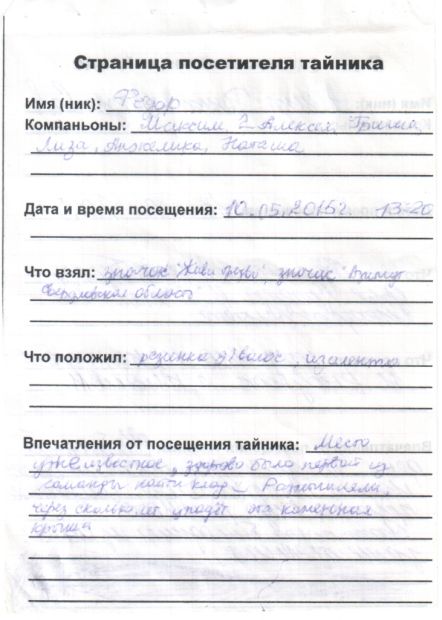 Страница посетителя тайника
Имя (ник): Фёдор
Компаньоны: Максим 2 Алексея, Гриша,
Лиза, Анжелика, Наташа
Дата и время посещения: 10.05.2015г. 13-20
Что взял: значок "Живи ", значок "
Свердловской области"
Что положил: резинка д/волос, изолента
Впечатления от посещения тайника: Место
уже известное, здорово было первой из
команды найти клад.
через сколько лет упадёт эта каменная
крыша